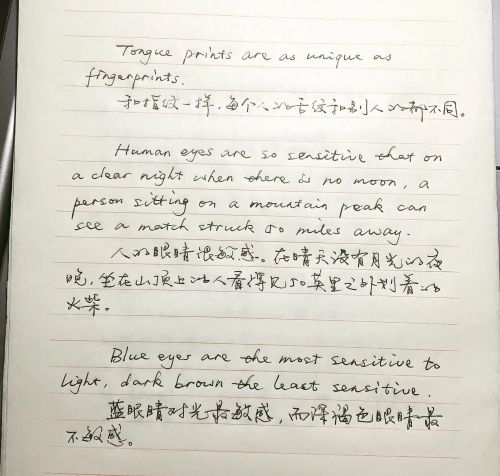 Tongue prints are as unique as
fingerprints.
和指纹一样，每个人的舌纹和别人的都不同。
Human eyes are so sensitive that on
a clear night when there is no moon, a
person sitting on a mountain peak can
see a match struck 50 miles away.
人的眼睛很敏感。在晴天没有月光的夜
晚，坐在山顶上的人看得见50英里之外划着的
火柴。
Blue eyes are the most sensitive to
light, dark brown the least sensitive.
蓝眼睛对光最敏感，而深褐色眼睛最
不敏感。